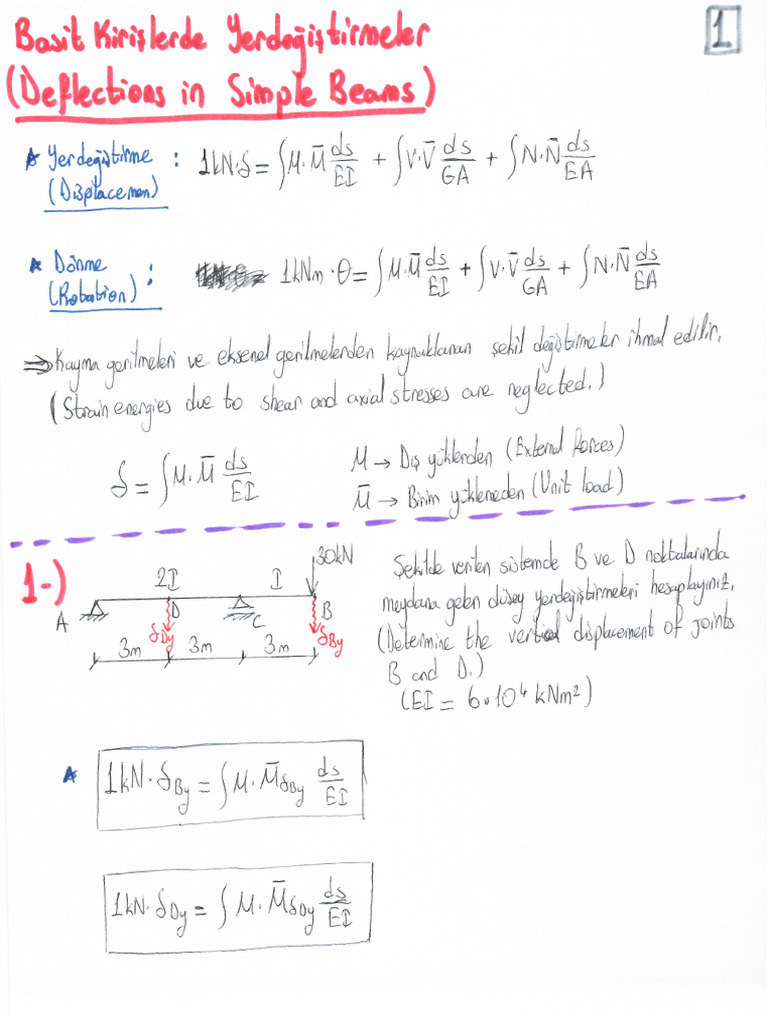 1
Basit Kirişlerde Yerdeğiştirmeler
(Deflections in Simple Beams)
Yerdeğiştirme : 1kN·δ = ∫M·M̄ ds/EI + ∫V·V̄ ds/GA + ∫N·N̄ ds/EA
(Displacemen)
Dönme : 1kNm·θ = ∫M·M̄ ds/EI + ∫V·V̄ ds/GA + ∫N·N̄ ds/EA
(Rotation)
⇒ Kayma gerilmeleri ve eksenel gerilmelerden kaynaklanan şekil değiştirmeler ihmal edilir.
(Strain energies due to shear and axial stresses are neglected.)
δ = ∫M·M̄ ds/EI
M → Dış yüklerden (External Forces)
M̄ → Birim yüklemeden (Unit load)
1-)
30kN
2I I
A D C B
δDy δBy
3m 3m 3m
Şekilde verilen sistemde B ve D noktalarında
meydana gelen düşey yerdeğiştirmeleri hesaplayınız.
(Determine the vertical displacement of joints
B and D.)
(EI = 6*10⁴ kNm²)
1kN·δBy = ∫M·M̄δBy ds/EI
1kN·δDy = ∫M·M̄δDy ds/EI